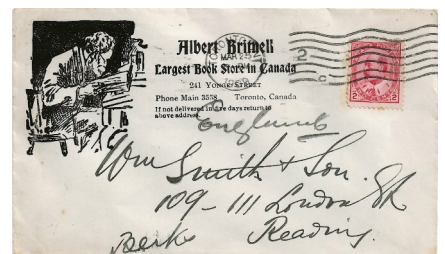 Albert Britnell
Largest Book Store in Canada
241 YONGE STREET
Phone Main 3558 Toronto, Canada
If not delivered in five days return to
above address
TORONTO
MAR 25
2
2 2
England
Wm Smith & Son.
109-111 London St
Reading.
Berks